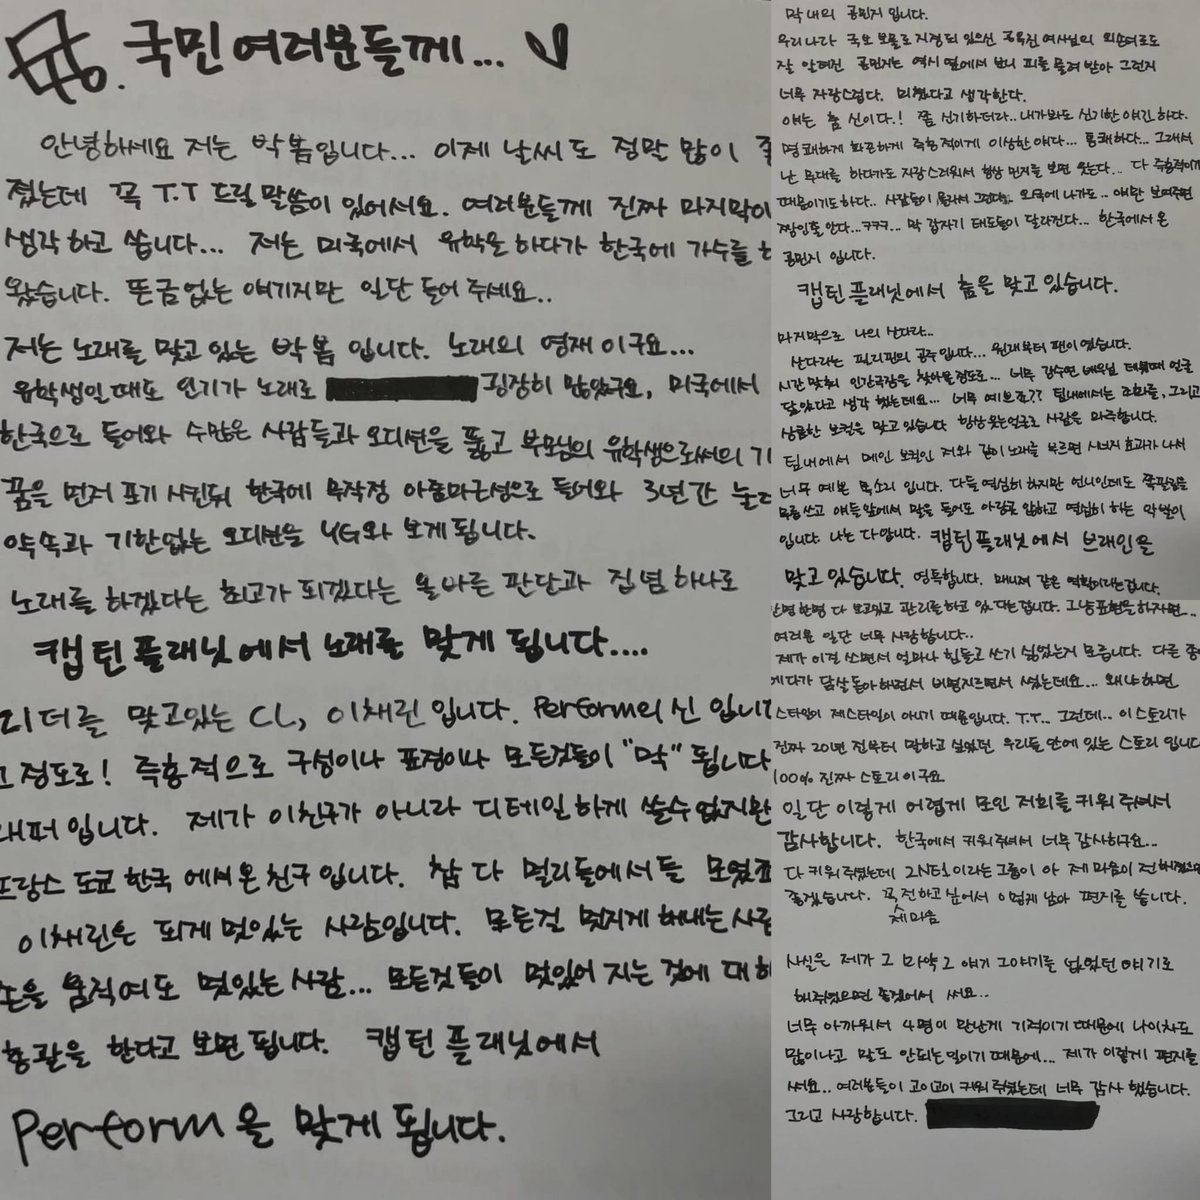 국민여러분들께...
안녕하세요 저는 박봄입니다... 이제 날씨도 정막 많이
졌는데 꼭 T.T 드릴 말씀이 있어서요. 여러분들께 진짜 마지막이
생각하고 씁니다... 저는 미국에서 유학을 하다가 한국에 가수를
왔습니다. 뜬금없는 얘기지만 일단 들어 주세요..
저는 노래를 맞고 있는 박봄 입니다. 노래의 영재 이구요...
유학생일때도 인기가 노래로 굉장히 많았구요, 미국에서
한국으로 들어와 수많은 사람들과 오디션을 뚫고 부모님의 유학생으로써의
꿈을 먼저 포기 시킨뒤 한국에 무작정 아줌마근성으로 들어와 3년간
약속과 기한없는 오디션을 YG와 보게됩니다.
노래를 하겠다는 최고가 되겠다는 올바른 판단과 집념 하나로
캡틴플래닛에서 노래를 맞게 됩니다....
리더를 맞고있는 CL, 이채린입니다. Perform의 신 입니다
고 정도로! 즉흥적으로 구성이나 표정이나 모든것들이 "막" 됩니다
래퍼 입니다. 제가 이친구가 아니라 디테일하게 쓸수 없지만
프랑스 도쿄 한국 에서 온 친구입니다. 참 다 멀리들에서들 모였죠
이채린은 되게 멋있는 사람입니다. 모든걸 멋지게 해내는 사람
손을 움직여도 멋있는 사람... 모든것들이 멋있어 지는 것에 대해
총괄을 한다고 보면 됩니다. 캡틴 플래닛에서
Perform을 맞게 됩니다.
막내의 공민지 입니다.
우리나라 국보 보물로 지정되 있으신 공옥진 여사님의 외손녀로도
잘 알려진 공민지는 역시 옆에서 보니 피를 물려 받아 그런지
너무 자랑스럽다. 미쳤다고 생각한다.
얘는 춤 신이다.! 쫌 신기하더라.. 내가봐도 신기한 얘긴 하다.
명쾌하게 화끈하게 즉흥적이게 이상한 얘다... 통쾌하다... 그래서
난 무대를 하다가도 자랑스러워서 항상 민지를 보면 웃는다... 다 즉흥적이기
때문이기도하다.. 사람들이 몰라서 그런데.. 외국에 나가도.. 얘만 보여주면
짱인줄 안다...ㅋㅋㅋ... 막 갑자기 태도들이 달라진다... 한국에서 온
공민지 입니다.
캡틴플래닛에서 춤을 맞고 있습니다.
마지막으로 나의 산다라..
산다라는 필리핀의 공주입니다... 원래부터 팬이였습니다.
시간 맞춰 인간극장을 찾아볼정도로... 너무 강수연 배우님 데뷔때 얼굴
닮았다고 생각 했는데요... 너무 예쁘죠?? 팀내에서는 조화를, 그리고
상큼한 보컬을 맞고 있습니다 항상 웃는얼굴로 사람을 마주합니다.
팀내에서 메인 보컬인 저와 같이 노래를 부르면 시너지 효과가 나서
너무 예쁜 목소리 입니다. 다들 열심히 하지만 언니인데도 쪽팔림을
무릅쓰고 얘들앞에서 말을 들어도 아랑곳 않하고 열심히 하는 악발이
입니다 나는 다압니다. 캡틴플래닛에서 브레인을
맞고 있습니다. 영특합니다. 매니저 같은 역할이라는겁니다.
한명 한명 다 보고있고 관리를 하고 있다는겁니다. 그냥 표현을 하자면...
여러분 일단 너무 사랑합니다..
제가 이걸 쓰면서 얼마나 힘들고 쓰기 싫었는지 모릅니다. 다른 종이
에다가 닭살 돋아 하면서 비명지르면서 썼는데요... 왜냐하면
스타일이 제스타일이 아니기 때문입니다. T.T.. 그런데.. 이스토리가
진짜 20년 전부터 말하고 싶었던 우리들 안에 있는 스토리 입니다
100% 진짜 스토리 이구요
일단 이렇게 어렵게 모인 저희를 키워 주셔서
감사합니다. 한국에서 키워주셔서 너무 감사하구요...
다 키워 주셨는데 2NE1이라는 그룹이 아 제 마음이 전해졌으면
좋겠습니다. 꼭 전하고 싶어서 이렇게 남아 편지를 씁니다.
제마음
사실은 제가 그 마약 그 얘기 그얘기를 없었던 얘기로
해주셨으면 좋겠어서 써요..
너무 아까워서 4명이 만난게 기적이기 때문에 나이차도
많이나고 말도 안되는 일이기 때문에... 제가 이렇게 편지를
써요.. 여러분들이 고이고이 키워 주셨는데 너무 감사 했습니다.
그리고 사랑합니다.